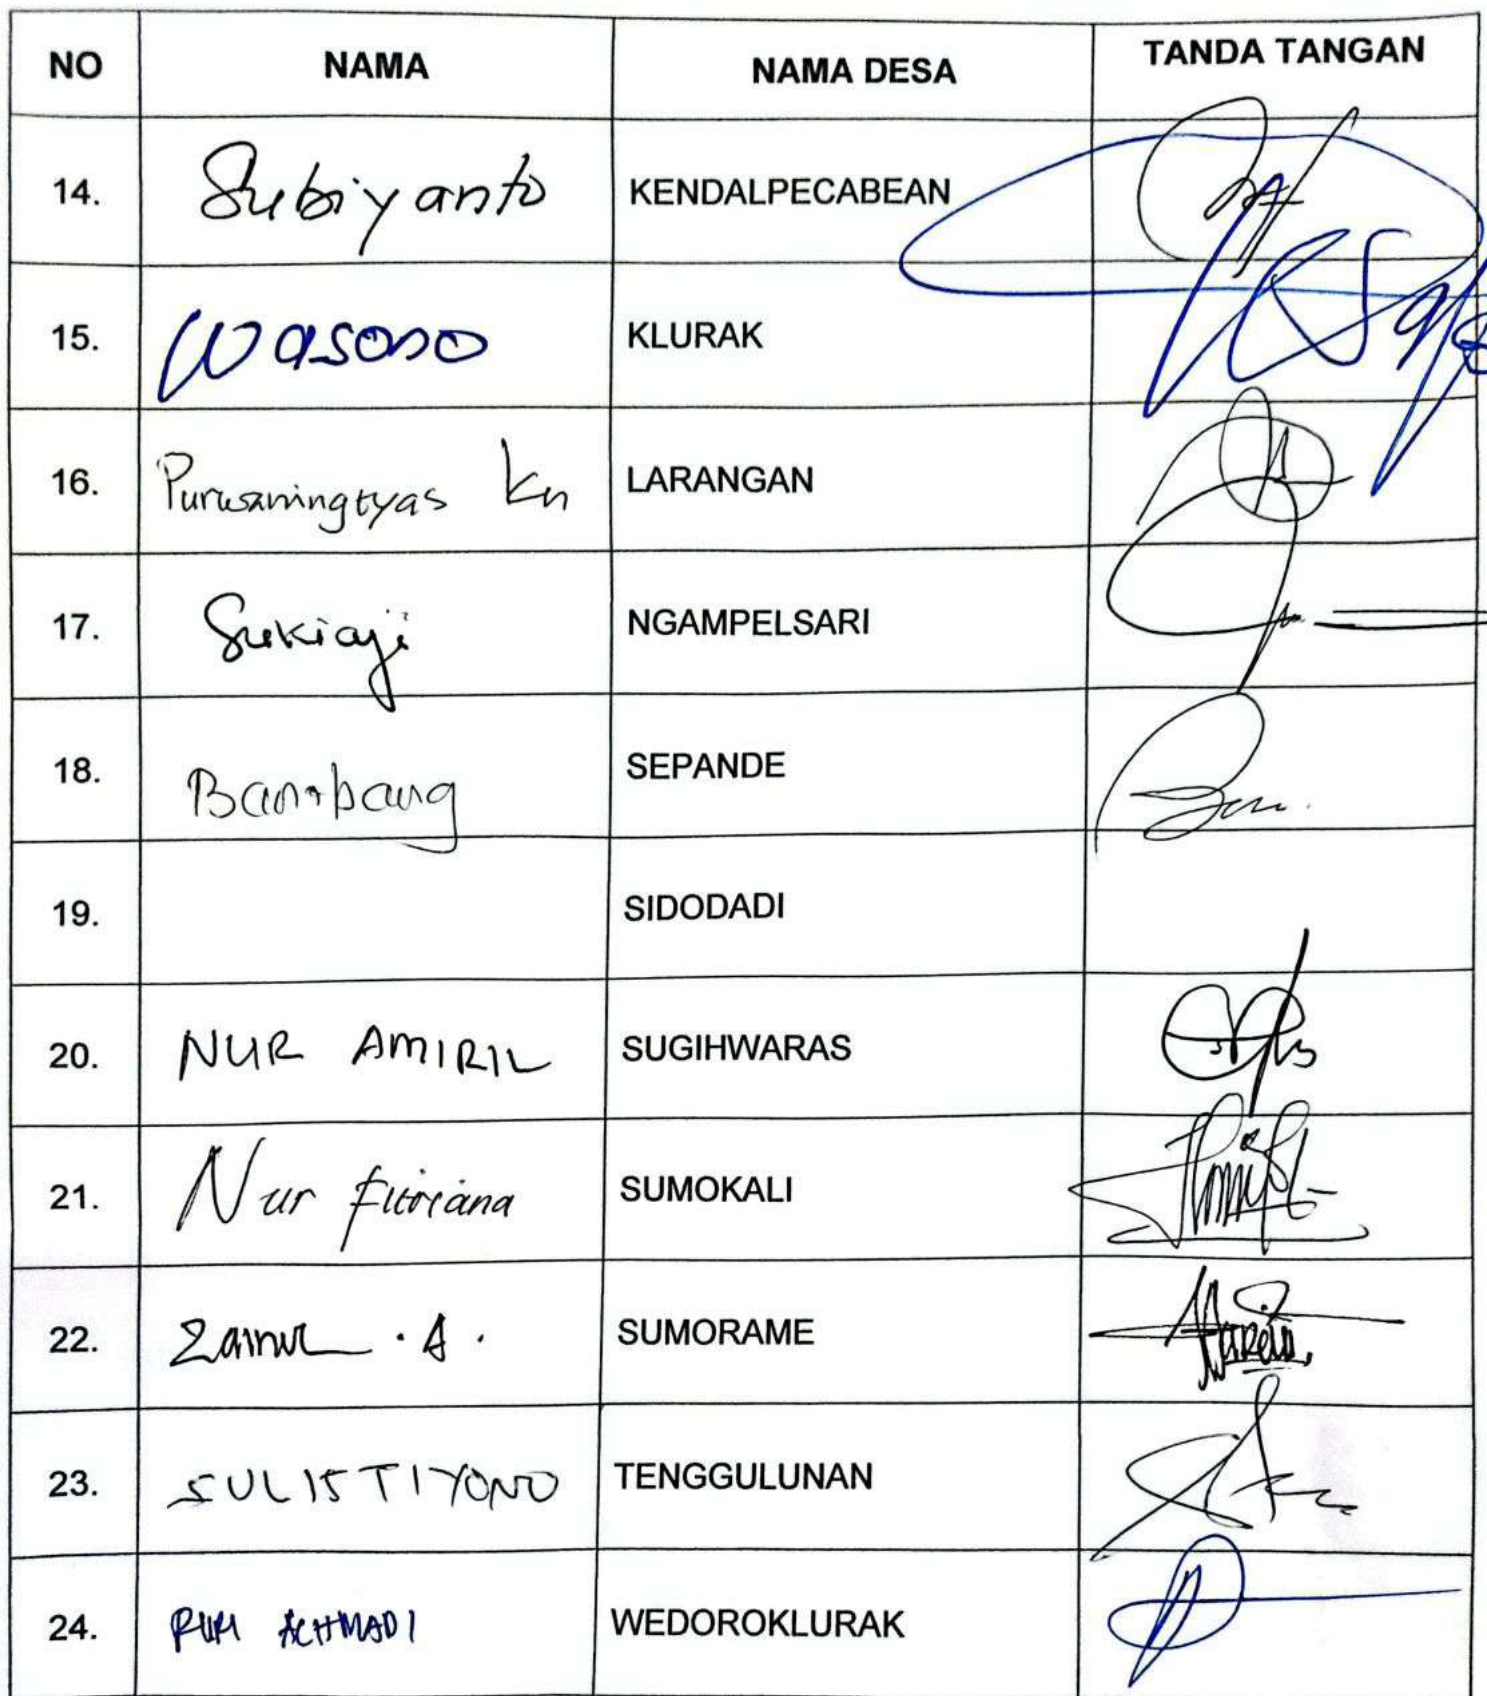 NO NAMA NAMA DESA TANDA TANGAN
14. Subiyanto KENDALPECABEAN
15. Wasono KLURAK
16. Purwaningtyas Kn LARANGAN
17. Sukiaji NGAMPELSARI
18. Bambang SEPANDE
19. SIDODADI
20. NUR AMIRIL SUGIHWARAS
21. Nur Fitriana SUMOKALI
22. Zainul . A . SUMORAME
23. SULISTIYONO TENGGULUNAN
24. ACHMADI WEDOROKLURAK